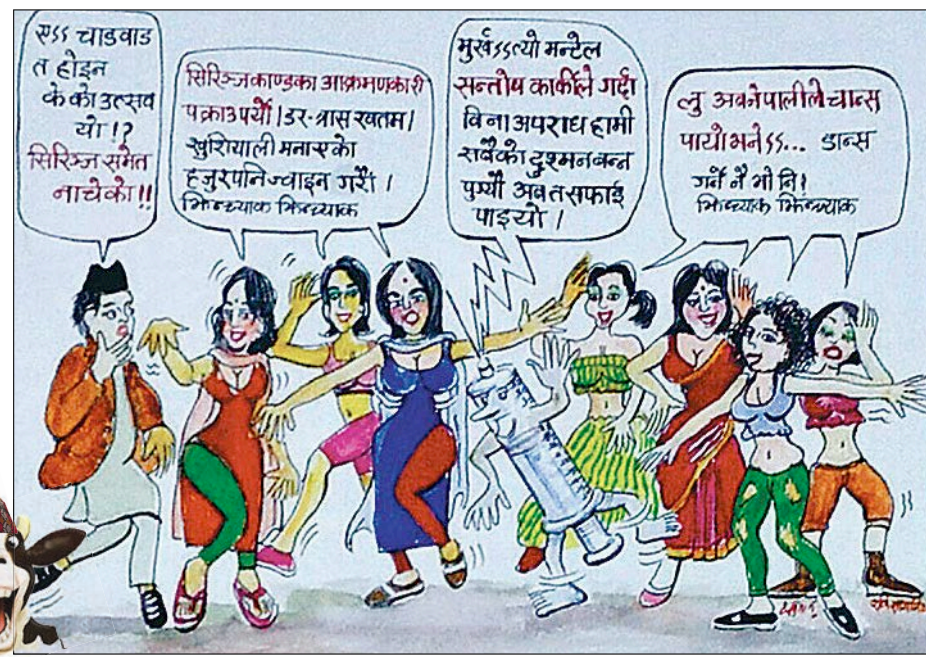 एऽऽ चाडवाड
त होइन
के को उत्सव
यो!?
सिरिञ्ज समेत
नाचेको!!
सिरिञ्जकाण्डका आक्रमणकारी
पक्राउ पर्यो।डर-त्रास खतम।
खुशियाली मनाएको
हजुरपनि ज्वाइन गरौं।
झिन्च्याक झिन्च्याक
मुर्खऽऽत्यो मन्टेल
सन्तोष कार्कीले गर्दा
बिना अपराध हामी
सबैको दुश्मन बन्न
पुग्यौं अब त सफाई
पाइयो।
लु अब नेपालीले चान्स
पायो भनेऽऽ... डान्स
गर्ने नै भो नि!
झिन्च्याक झिन्च्याक